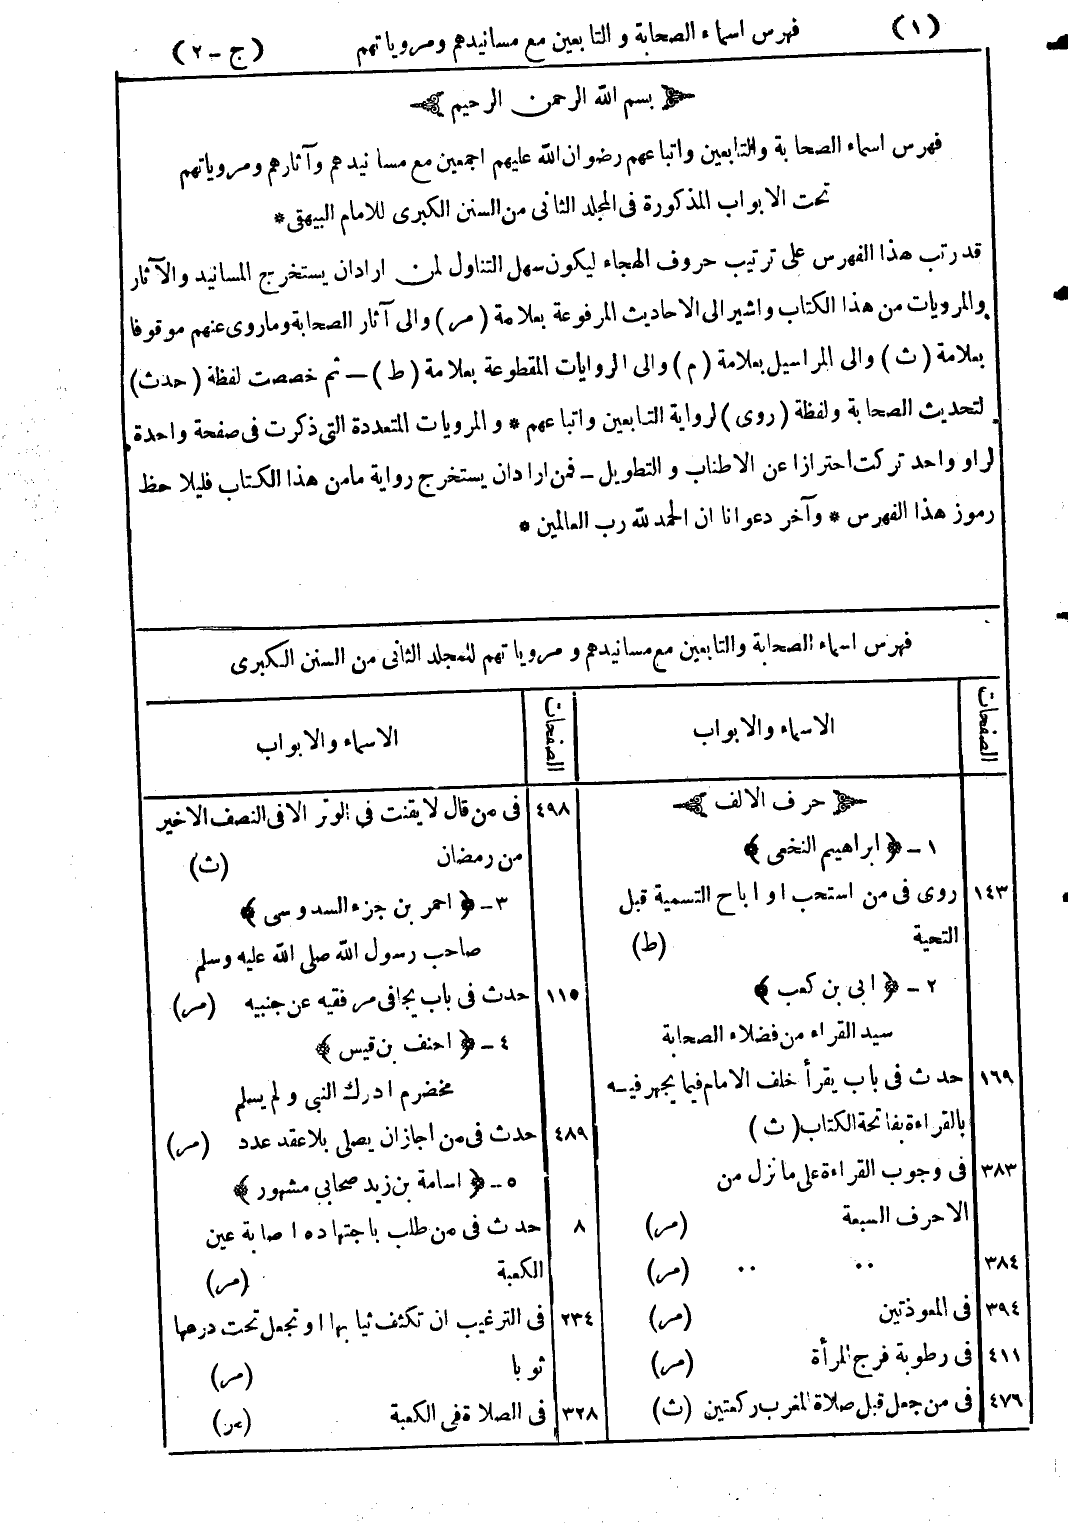 (١) فهرس اسماء الصحابة و التابعين مع مسانيدهم ومروياتهم (ج - ٢)
بسم الله الرحمن الرحيم
فهرس اسماء الصحابة والتابعين واتباعهم رضوان الله عليهم اجمعين مع مسانيدهم وآثارهم ومروياتهم
تحت الابواب المذكورة فى المجلد الثانى من السنن الكبرى للامام البيهقى *
قد رتب هذا الفهرس على ترتيب حروف الهجاء ليكون سهل التناول لمن ارادان يستخرج المسانيد والآثار
والمرويات من هذا الكتاب واشير الى الاحاديث المرفوعة بعلامة (مر) والى آثار الصحابة وماروى عنهم موقوفا
بعلامة (ث) والى المراسيل بعلامة (م) والى الروايات المقطوعة بعلامة (ط) — ثم خصصت لفظة (حدث)
لتحديث الصحابة ولفظة (روى) لرواية التابعين واتباعهم * و المرويات المتعددة التى ذكرت فى صفحة واحدة
لراو واحد تركت احترازا عن الاطناب و التطويل - فمن ارادان يستخرج رواية مامن هذا الكتاب فليلاحظ
رموز هذا الفهرس * وآخر دعوانا ان الحمد لله رب العالمين *
فهرس اسماء الصحابة والتابعين مع مسانيدهم و مروياتهم للمجلد الثانى من السنن الكبرى
الصفحات
الاسماء والابواب
حرف الالف
١ - ﴿ ابراهيم النخعى ﴾
١٤٣ روى فى من استحب او اباح التسمية قبل
التحية (ط)
٢ - ﴿ ابى بن كعب ﴾
سيد القراء من فضلاء الصحابة
١٦٩ حدث فى باب يقرأ خلف الامام فيما يجهر فيه
بالقراءة بفاتحة الكتاب (ث)
٣٨٣ فى وجوب القراءة على مانزل من
الاحرف السبعة (مر)
٣٨٤ ،، ،، (مر)
٣٩٤ فى المعوذتين (مر)
٤١١ فى رطوبة فرج المرأة (مر)
٤٧٦ فى من جعل قبل صلاة المغرب ركعتين (ث)
الصفحات
الاسماء والابواب
٤٩٨ فى من قال لا يقنت في الوتر الا فى النصف الاخير
من رمضان (ث)
٣ - ﴿ احمر بن جزء السدوسى ﴾
صاحب رسول الله صلى الله عليه وسلم
١١٥ حدث فى باب يجافى مرفقيه عن جنبيه (مر)
٤ - ﴿ احنف بن قيس ﴾
مخضرم ادرك النبى و لم يسلم
٤٨٩ حدث فى من اجازان يصلى بلاعقد عدد (مر)
٥ - ﴿ اسامة بن زيد صحابي مشهور ﴾
٨ حدث فى من طلب باجتهاده اصابة عين
الكعبة (مر)
٢٣٤ فى الترغيب ان تكثف ثيابها او تجعل تحت درعها
ثوبا (مر)
٣٢٨ فى الصلاة فى الكعبة (مر)